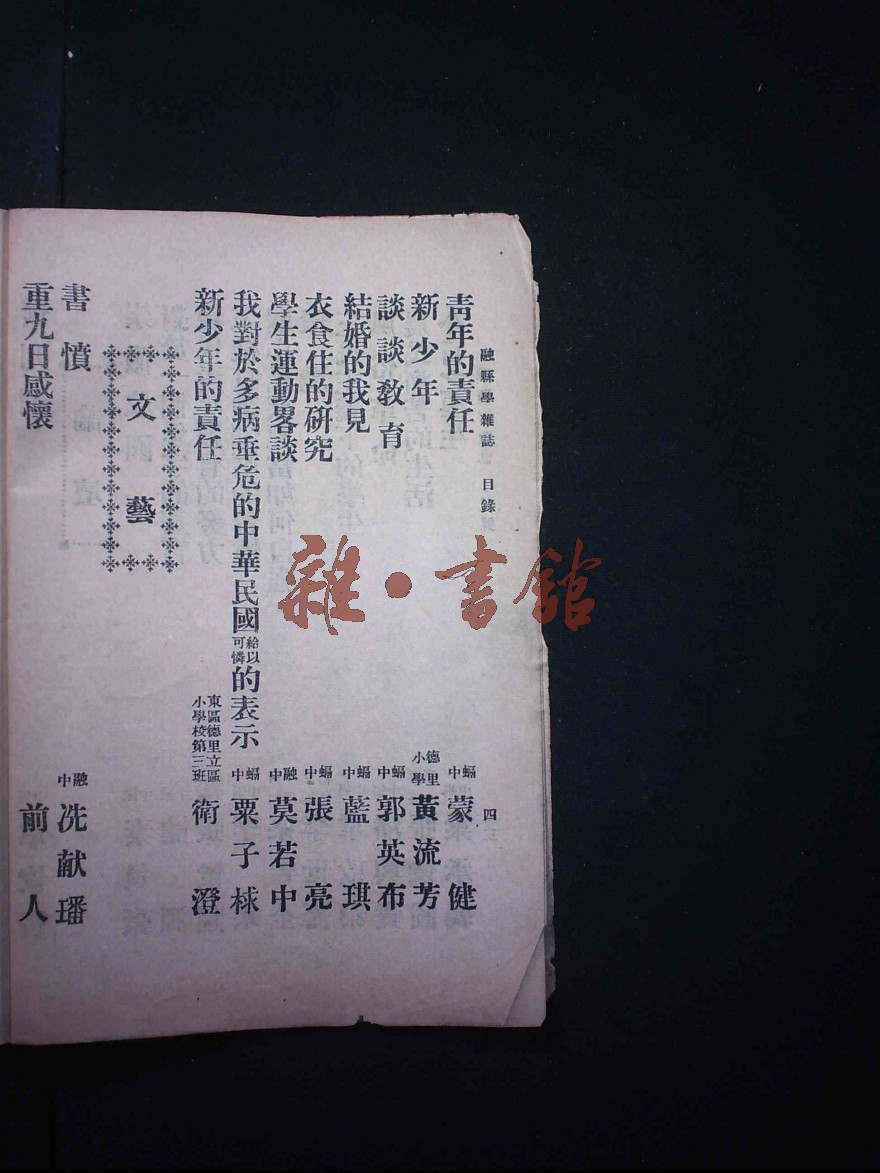 融縣學雜誌 目錄 四
青年的責任 蝠中 蒙健
新少年 德里小學 黃流芳
談談敎育 蝠中 郭英布
結婚的我見 蝠中 藍琪
衣食住的硏究 蝠中 張亮
學生運動畧談 融中 莫若中
我對於多病垂危的中華民國給以可憐的表示 蝠中 粟子梂
新少年的責任 東區德里立區小學校第三班 衛澄
文藝
書憤 融中 冼献璠
重九日感懷 前人
雜·書館